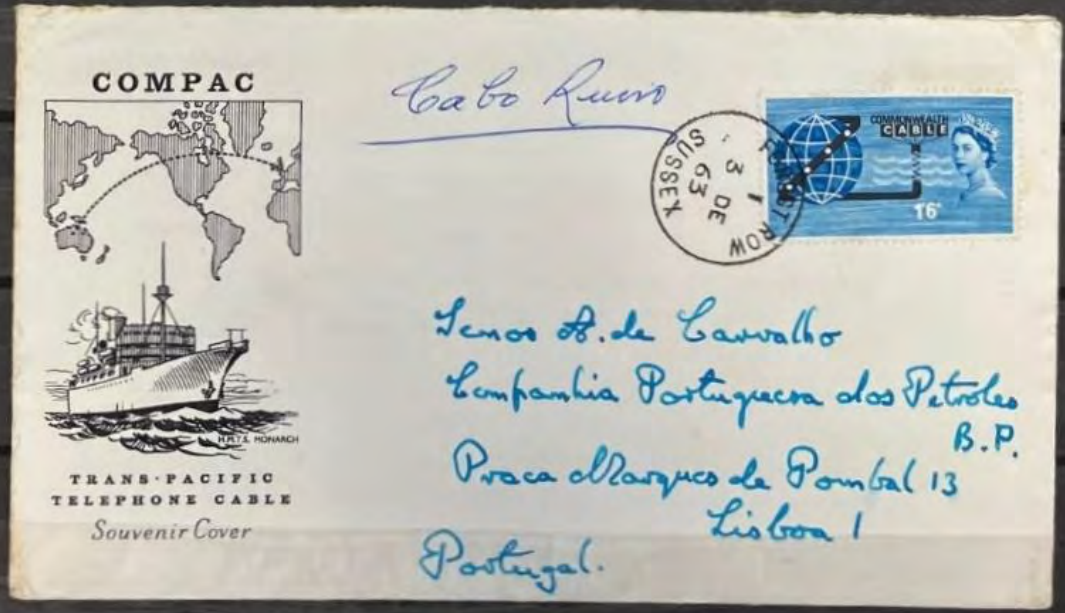 COMPAC
H.M.T.S. MONARCH
TRANS-PACIFIC
TELEPHONE CABLE
Souvenir Cover
Cabo Ruivo
COMMONWEALTH
CABLE
1'6ᵈ
ROW
1
3 DE
63
SUSSEX
Senor A. de Carvalho
Companhia Portuguesa dos Petroleos
B.P.
Praca Marques de Pombal 13
Lisboa 1
Portugal.